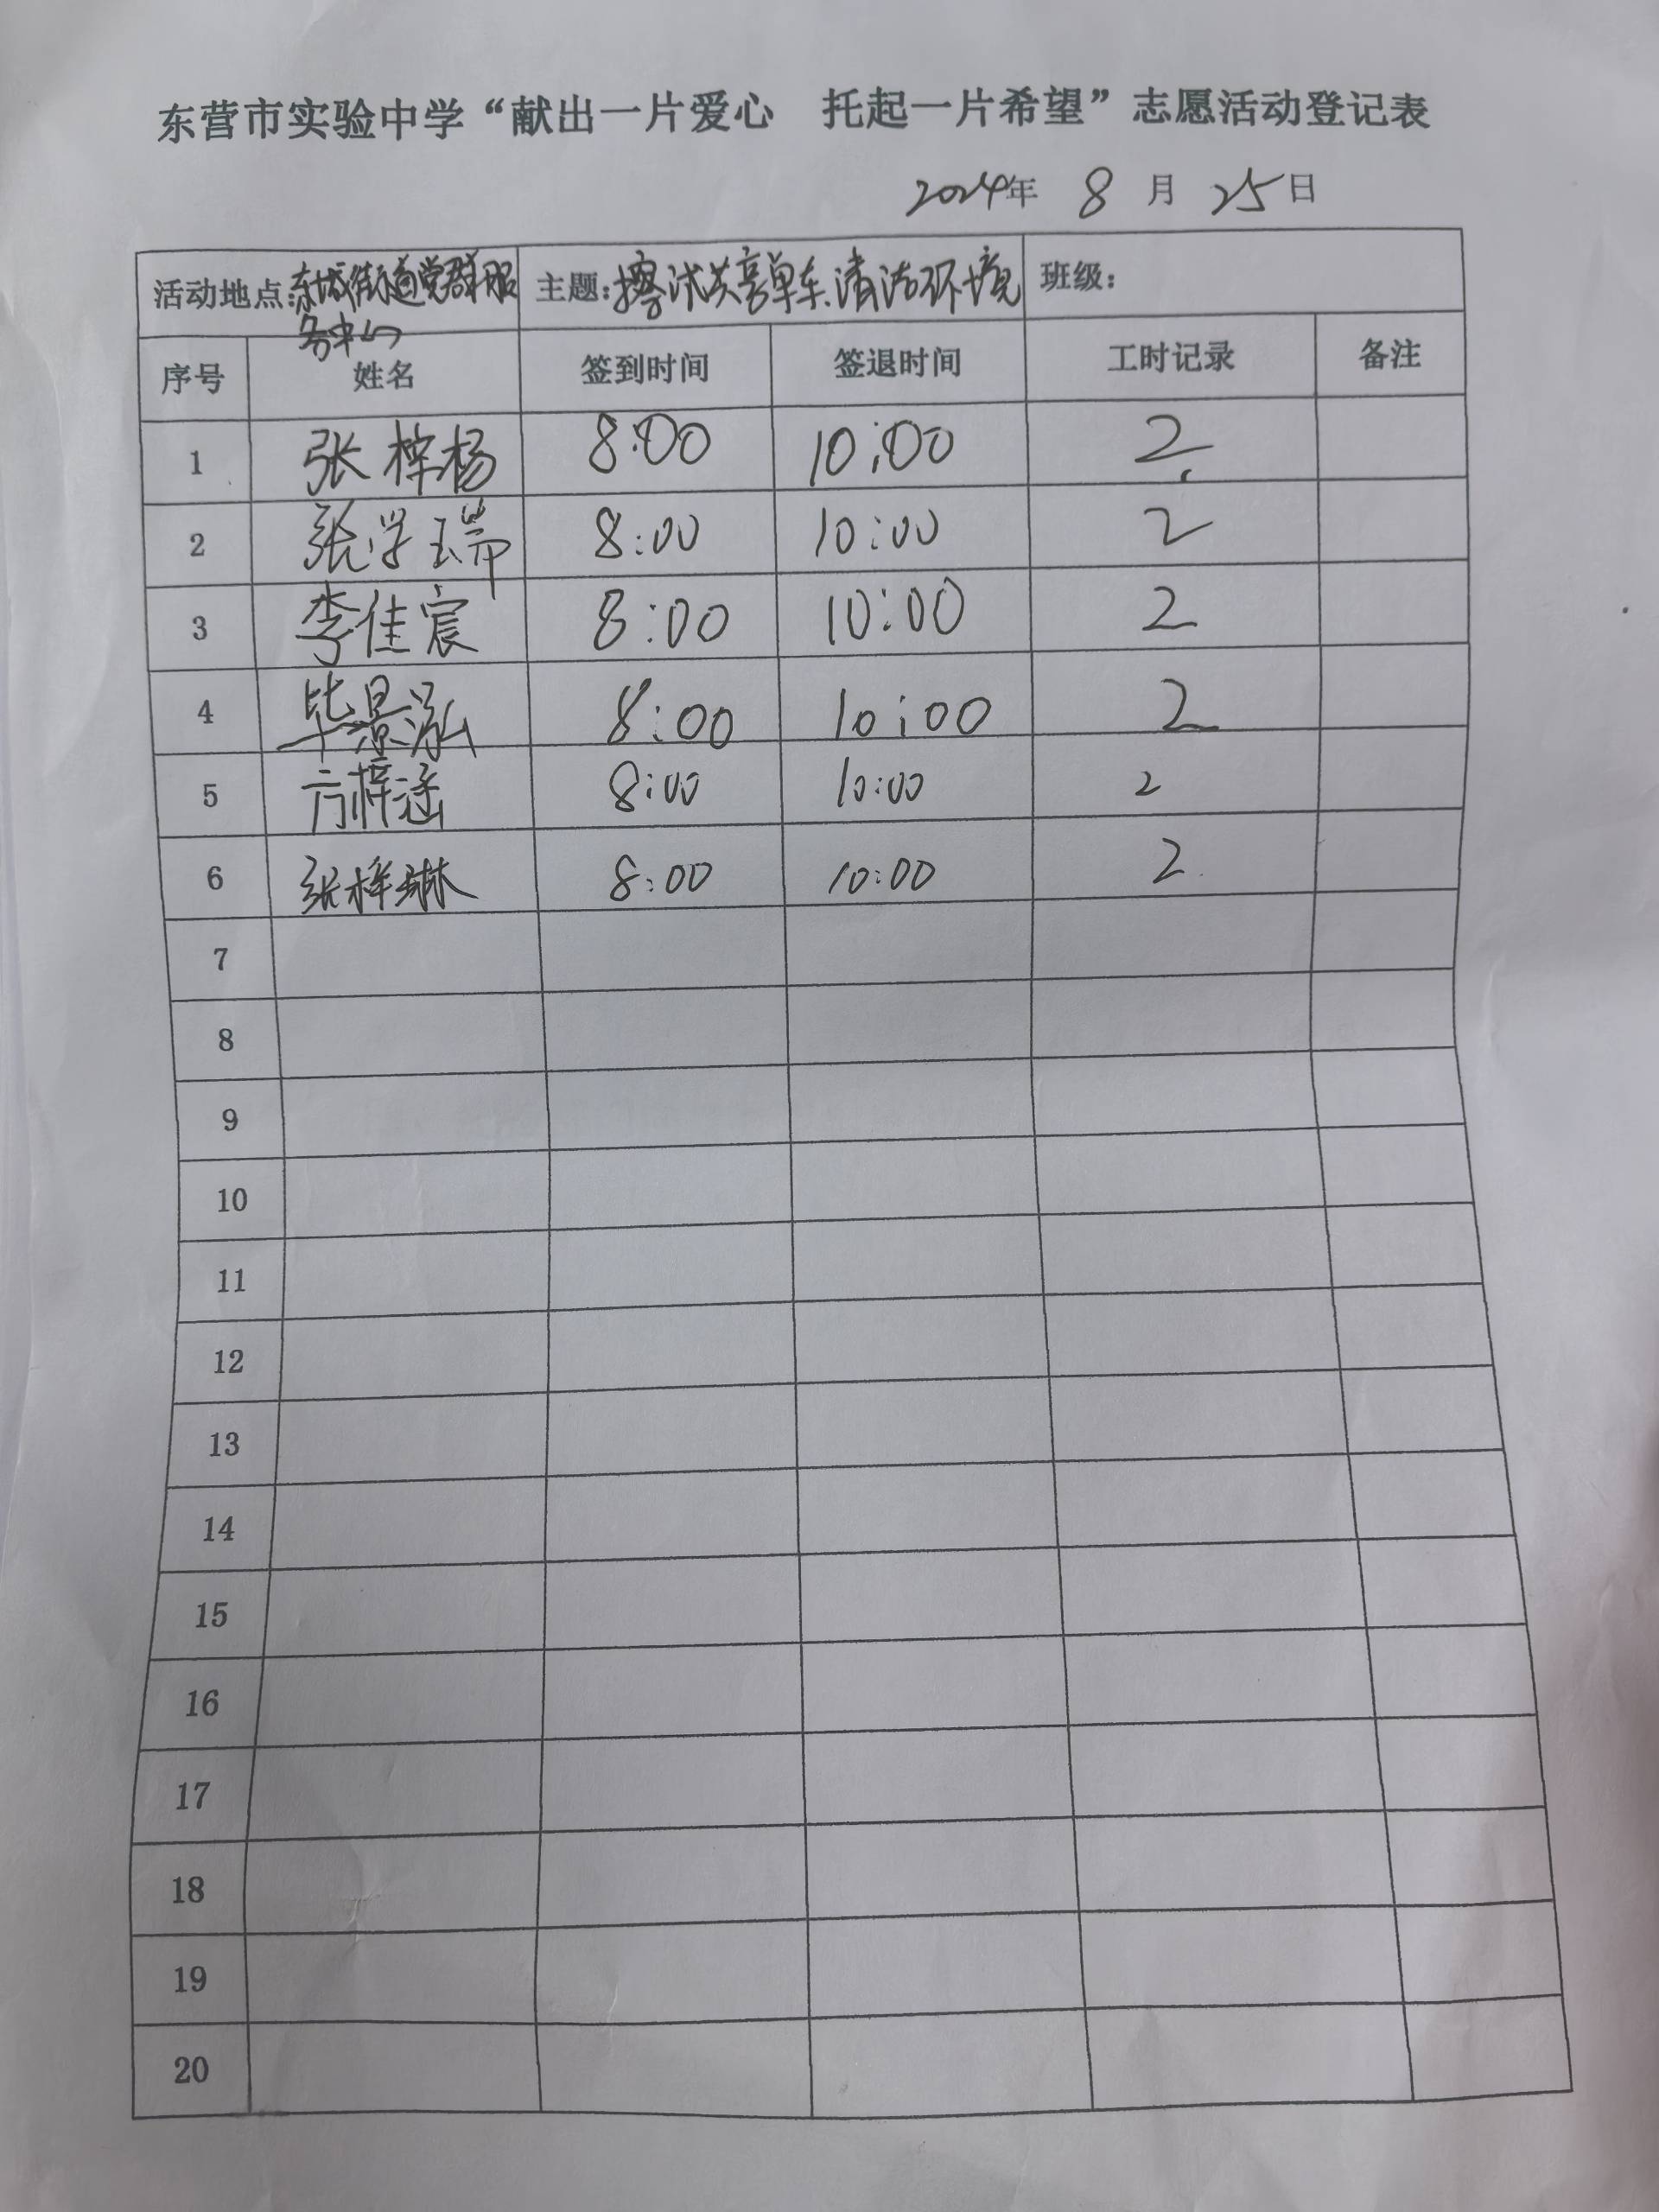 东营市实验中学“献出一片爱心 托起一片希望”志愿活动登记表
2024年 8 月 25日
活动地点:东城街道党群服务中心 主题:擦拭共享单车、清洁环境 班级:
序号 姓名 签到时间 签退时间 工时记录 备注
1 张梓杨 8:00 10:00 2
2 张学瑞 8:00 10:00 2
3 李佳宸 8:00 10:00 2
4 毕景泓 8:00 10:00 2
5 亓梓涵 8:00 10:00 2
6 张梓琳 8:00 10:00 2
7
8
9
10
11
12
13
14
15
16
17
18
19
20